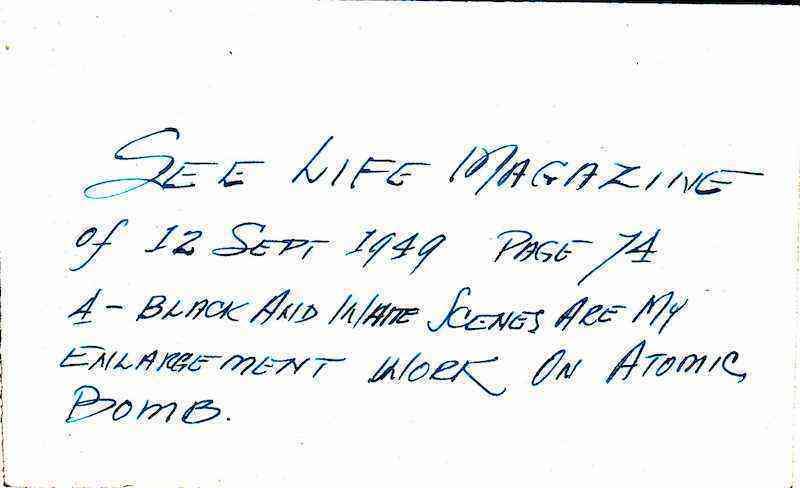 SEE LIFE MAGAZINE
of 12 SEPT 1949 PAGE 74
4 - BLACK AND WHITE SCENES ARE MY
ENLARGEMENT WORK ON ATOMIC
BOMB.